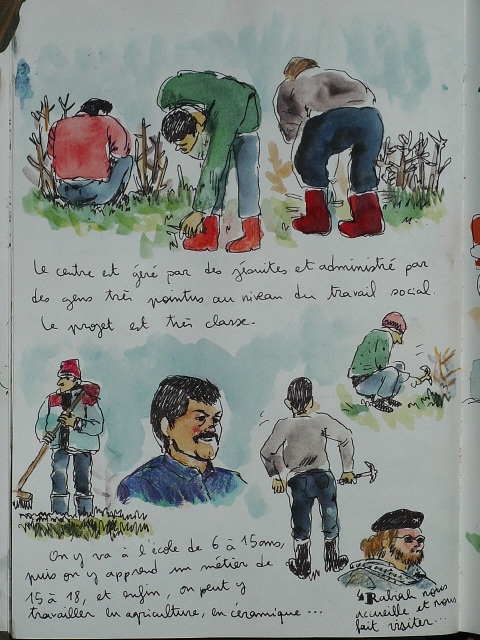 Le centre est géré par des jésuites et administré par
des gens très pointus au niveau du travail social.
Le projet est très classe.
On y va à l'école de 6 à 15 ans,
puis on y apprend un métier de
15 à 18, et enfin, on peut y
travailler en agriculture, en céramique...
Rabiah nous
accueille et nous
fait visiter...